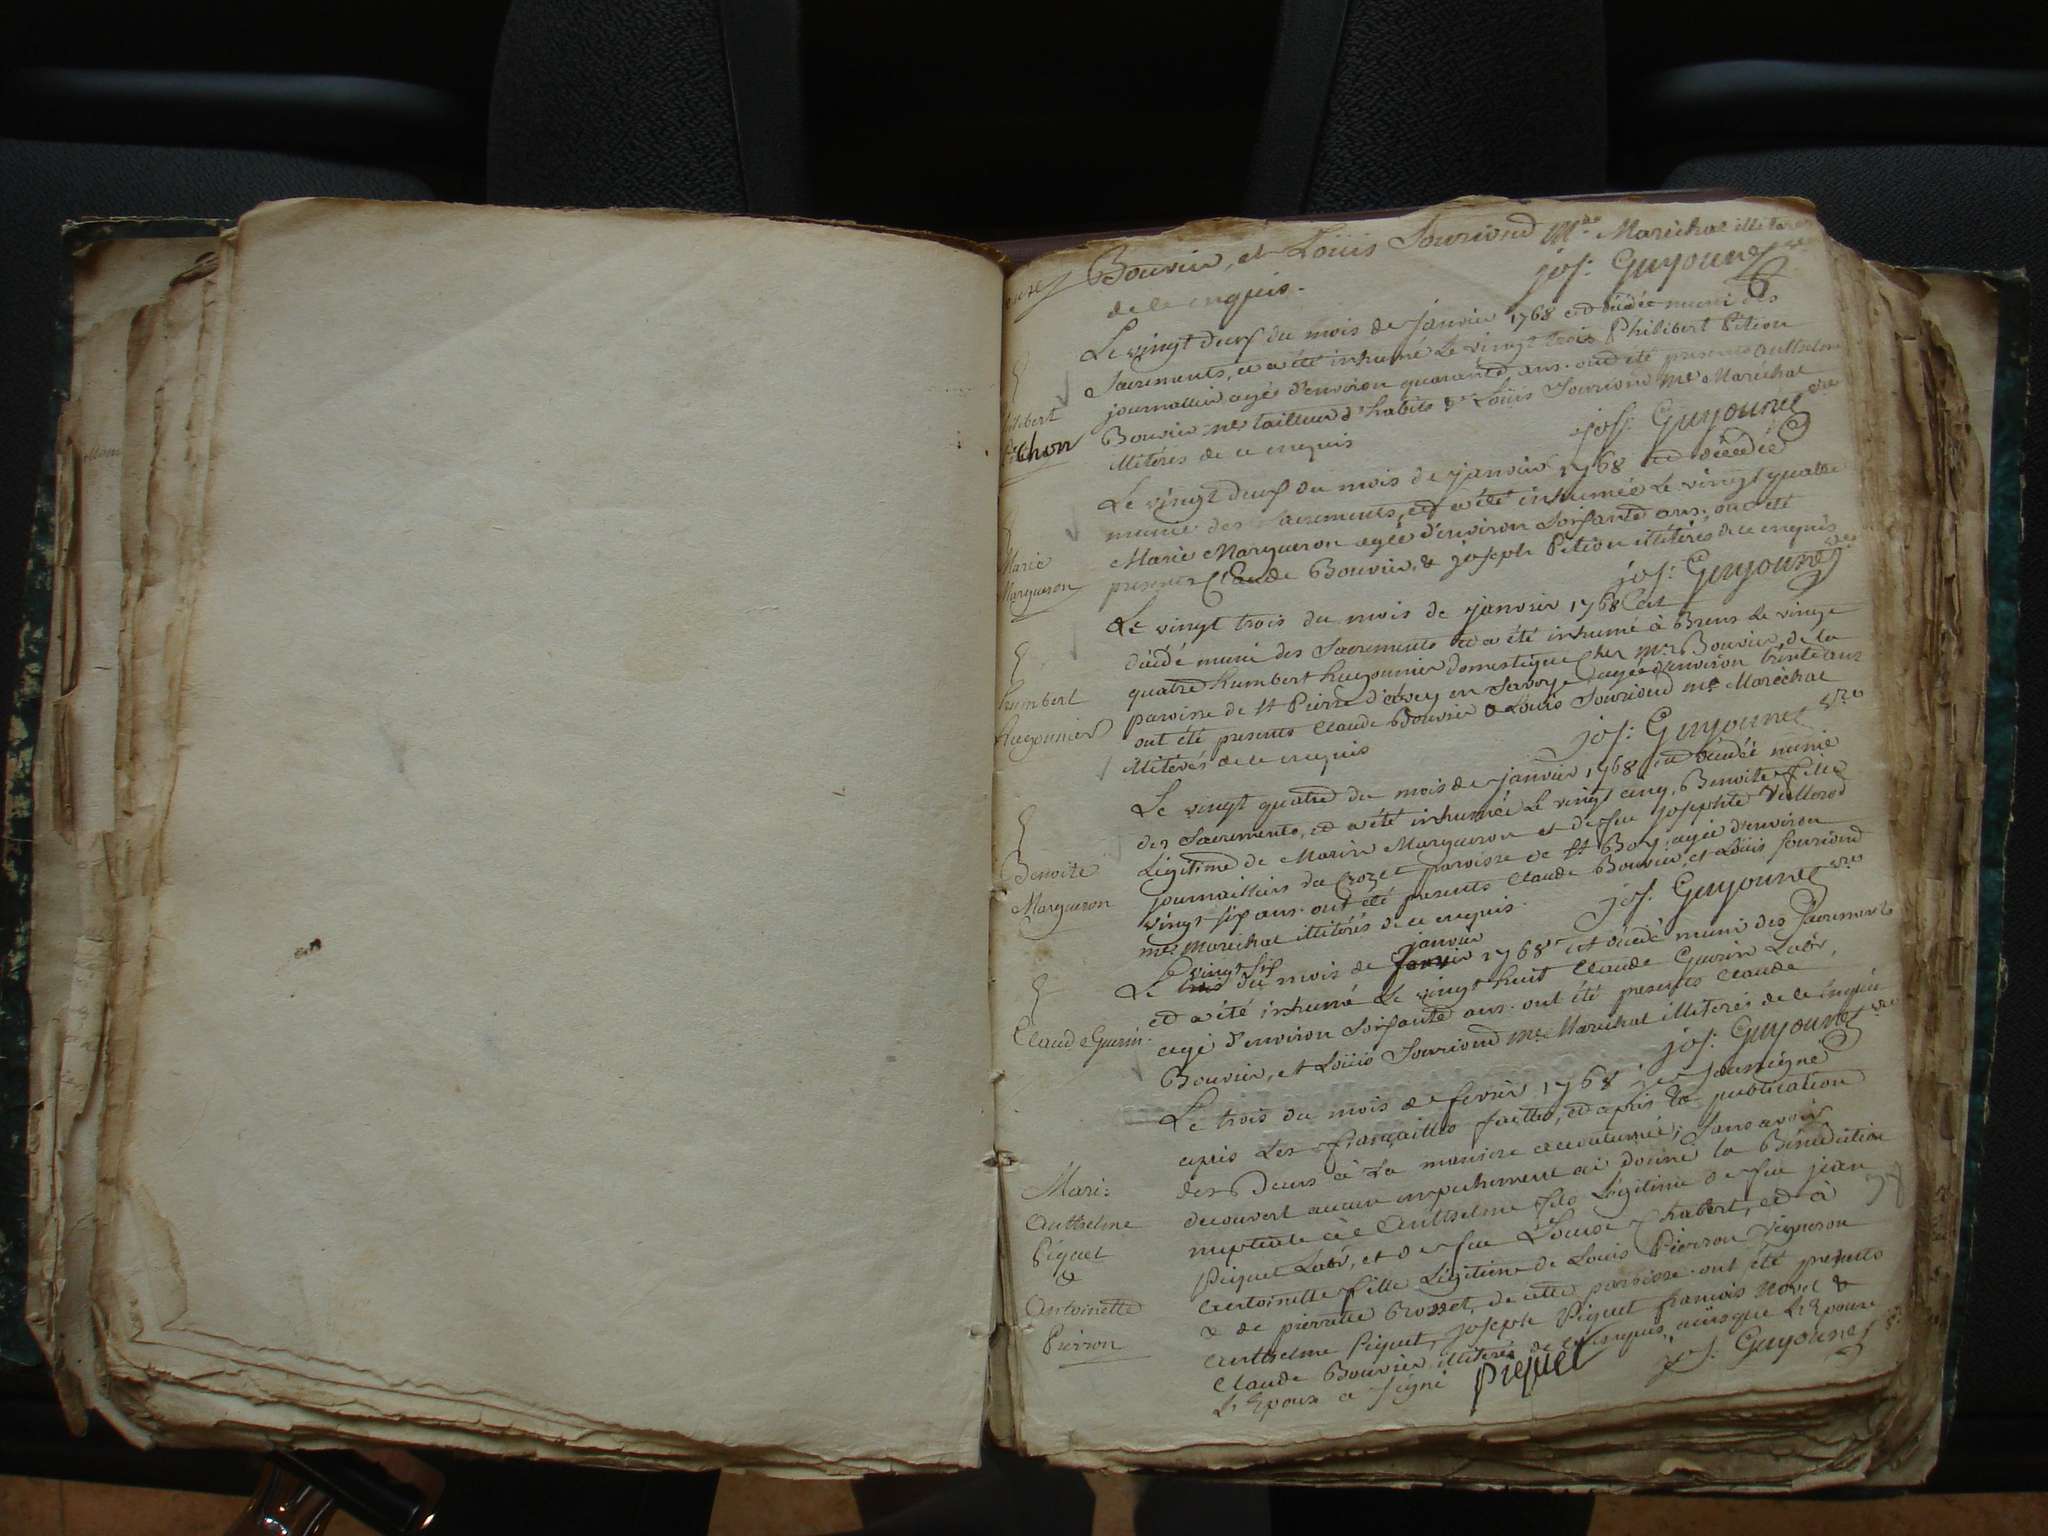 Bouvier, et Loüis Souriond Mtre Maréchal illiterés
de ce enquis. jos: Guyounet vre
Le vingt deux du mois de janvier 1768 est décédé muni des
Sacrements, et a été inhumé Le vingt trois Philibert Pétion
journallier agé d'environ quarante ans. ont été présents Anthelme
Bouvier me tailleur d'habits & Loüis Souriond me Maréchal
illitérés de ce enquis
jos: Guyounet vre
llibert
chon
Le vingt deux du mois de janvier 1768 est décédée
munie des Sacrements, et a été inhumée Le vingt quatre
Marie Margueron agée d'environ Soixante ans. ont été
presents Claude Bouvier, & joseph Pétion illitérés de ce enquis
jos: Guyounet vre
Marie
Margueron
Le vingt trois du mois de janvier 1768 est
décédé muni des Sacrements et a été inhumé à Brens Le vingt
quatre humbert hugonnier domestique chez mr Bouvier, de la
paroisse de St Pierre d' en Savoye, agé d'environ trente ans
ont été presents Claude Bouvier & Loüis Souriond me Maréchal
illitérés de ce enquis jos: Guyounet vre
humbert
hugonnier
Le vingt quatre du mois de janvier 1768 est décédée munie
des Sacrements, et a été inhumée Le vingt cinq, Benoite fille
Légitime de Marin Margueron et de feu josephte Vullerod
journailliers du Crozet paroisse de St Boy, agée d'environ
vingt six ans. ont été presents Claude Bouvier, et Loüis Souriond
me Maréchal illitérés de ce enquis. jos: Guyounet vre
Benoite
Margueron
Le vingt six du mois de janvier 1768 est décédé muni des Sacrements
et a été inhumé Le vingt huit Claude Guerin Labr,
agé d'environ Soixante ans. ont été presents Claude
Bouvier, et Loüis Souriond me Maréchal illiterés de ce enquis
jos: Guyounet vre
Claude Guerin.
Le trois du mois de fevrier 1768 je soussigné
après Les fiançailles faittes, et après la publication
des Bans à La maniere accoutumée; Sans avoir
decouvert aucun empechement ai donné la Bénédiction
nuptiale à Anthelme fils Légitime de feu jean
Piquet Labr, et de feu Louise Chabert, et à
Antoinette fille Légitime de Louis Pierron vigneron
& de pierrette Brosset, de cette paroisse. ont été presents
Anthelme Piquet, joseph Piquet françois Morel &
Claude Bouvier illitérés de ce enquis, ainsique L'Epouse
L'Epoux a signé Piquet jos: Guyounet vre
Mari:
Anthelme
Piquet
&
Antoinette
Pierron